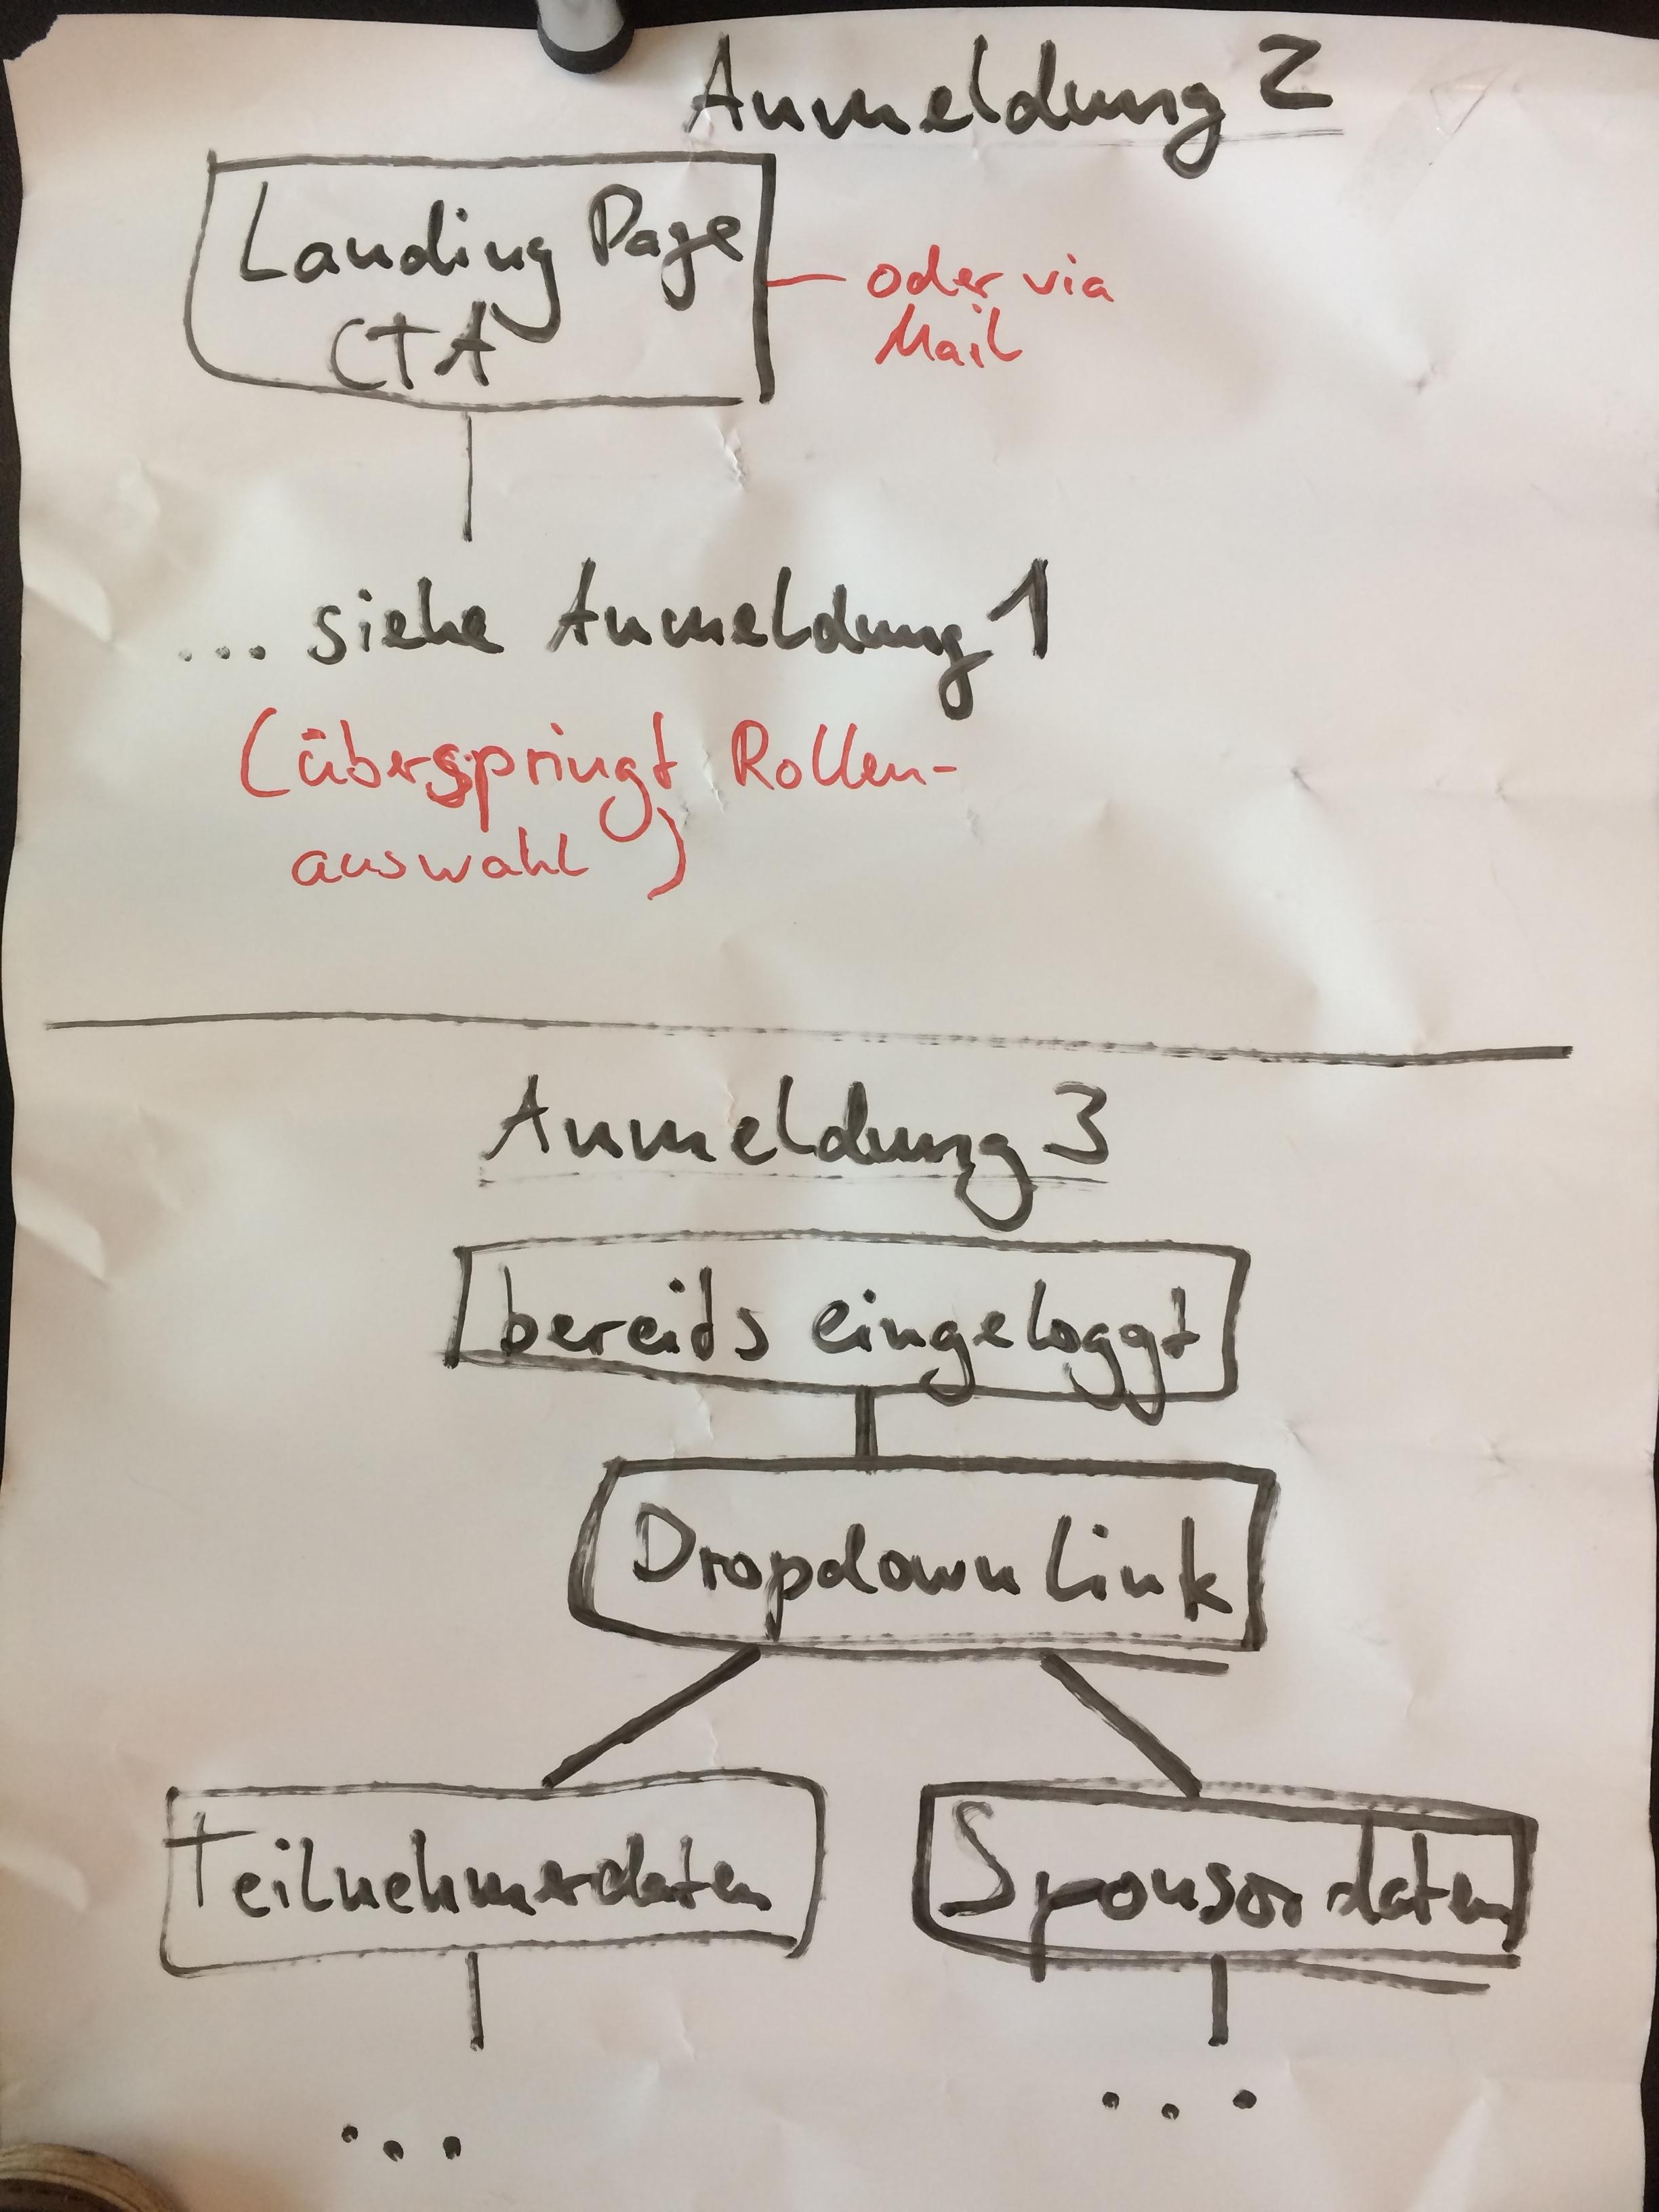 Anmeldung 2
Landing Page
CTA
oder via
Mail
... siehe Anmeldung 1
(überspringt Rollen-
auswahl)
Anmeldung 3
bereits eingeloggt
Dropdown Link
Teilnehmerdaten
Sponsordaten
...
...